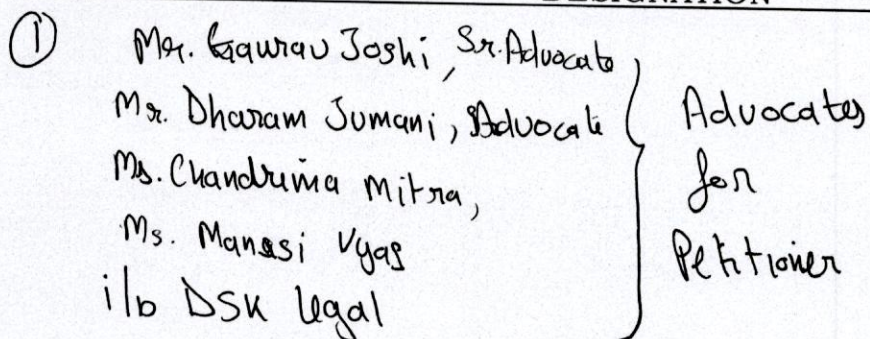 DESIGNATION
① Mr. Gaurav Joshi, Sr. Advocate
Mr. Dharam Jumani, Advocate
Ms. Chandrima Mitra,
Ms. Manasi Vyas
i/b DSK Legal
Advocates
for
Petitioner